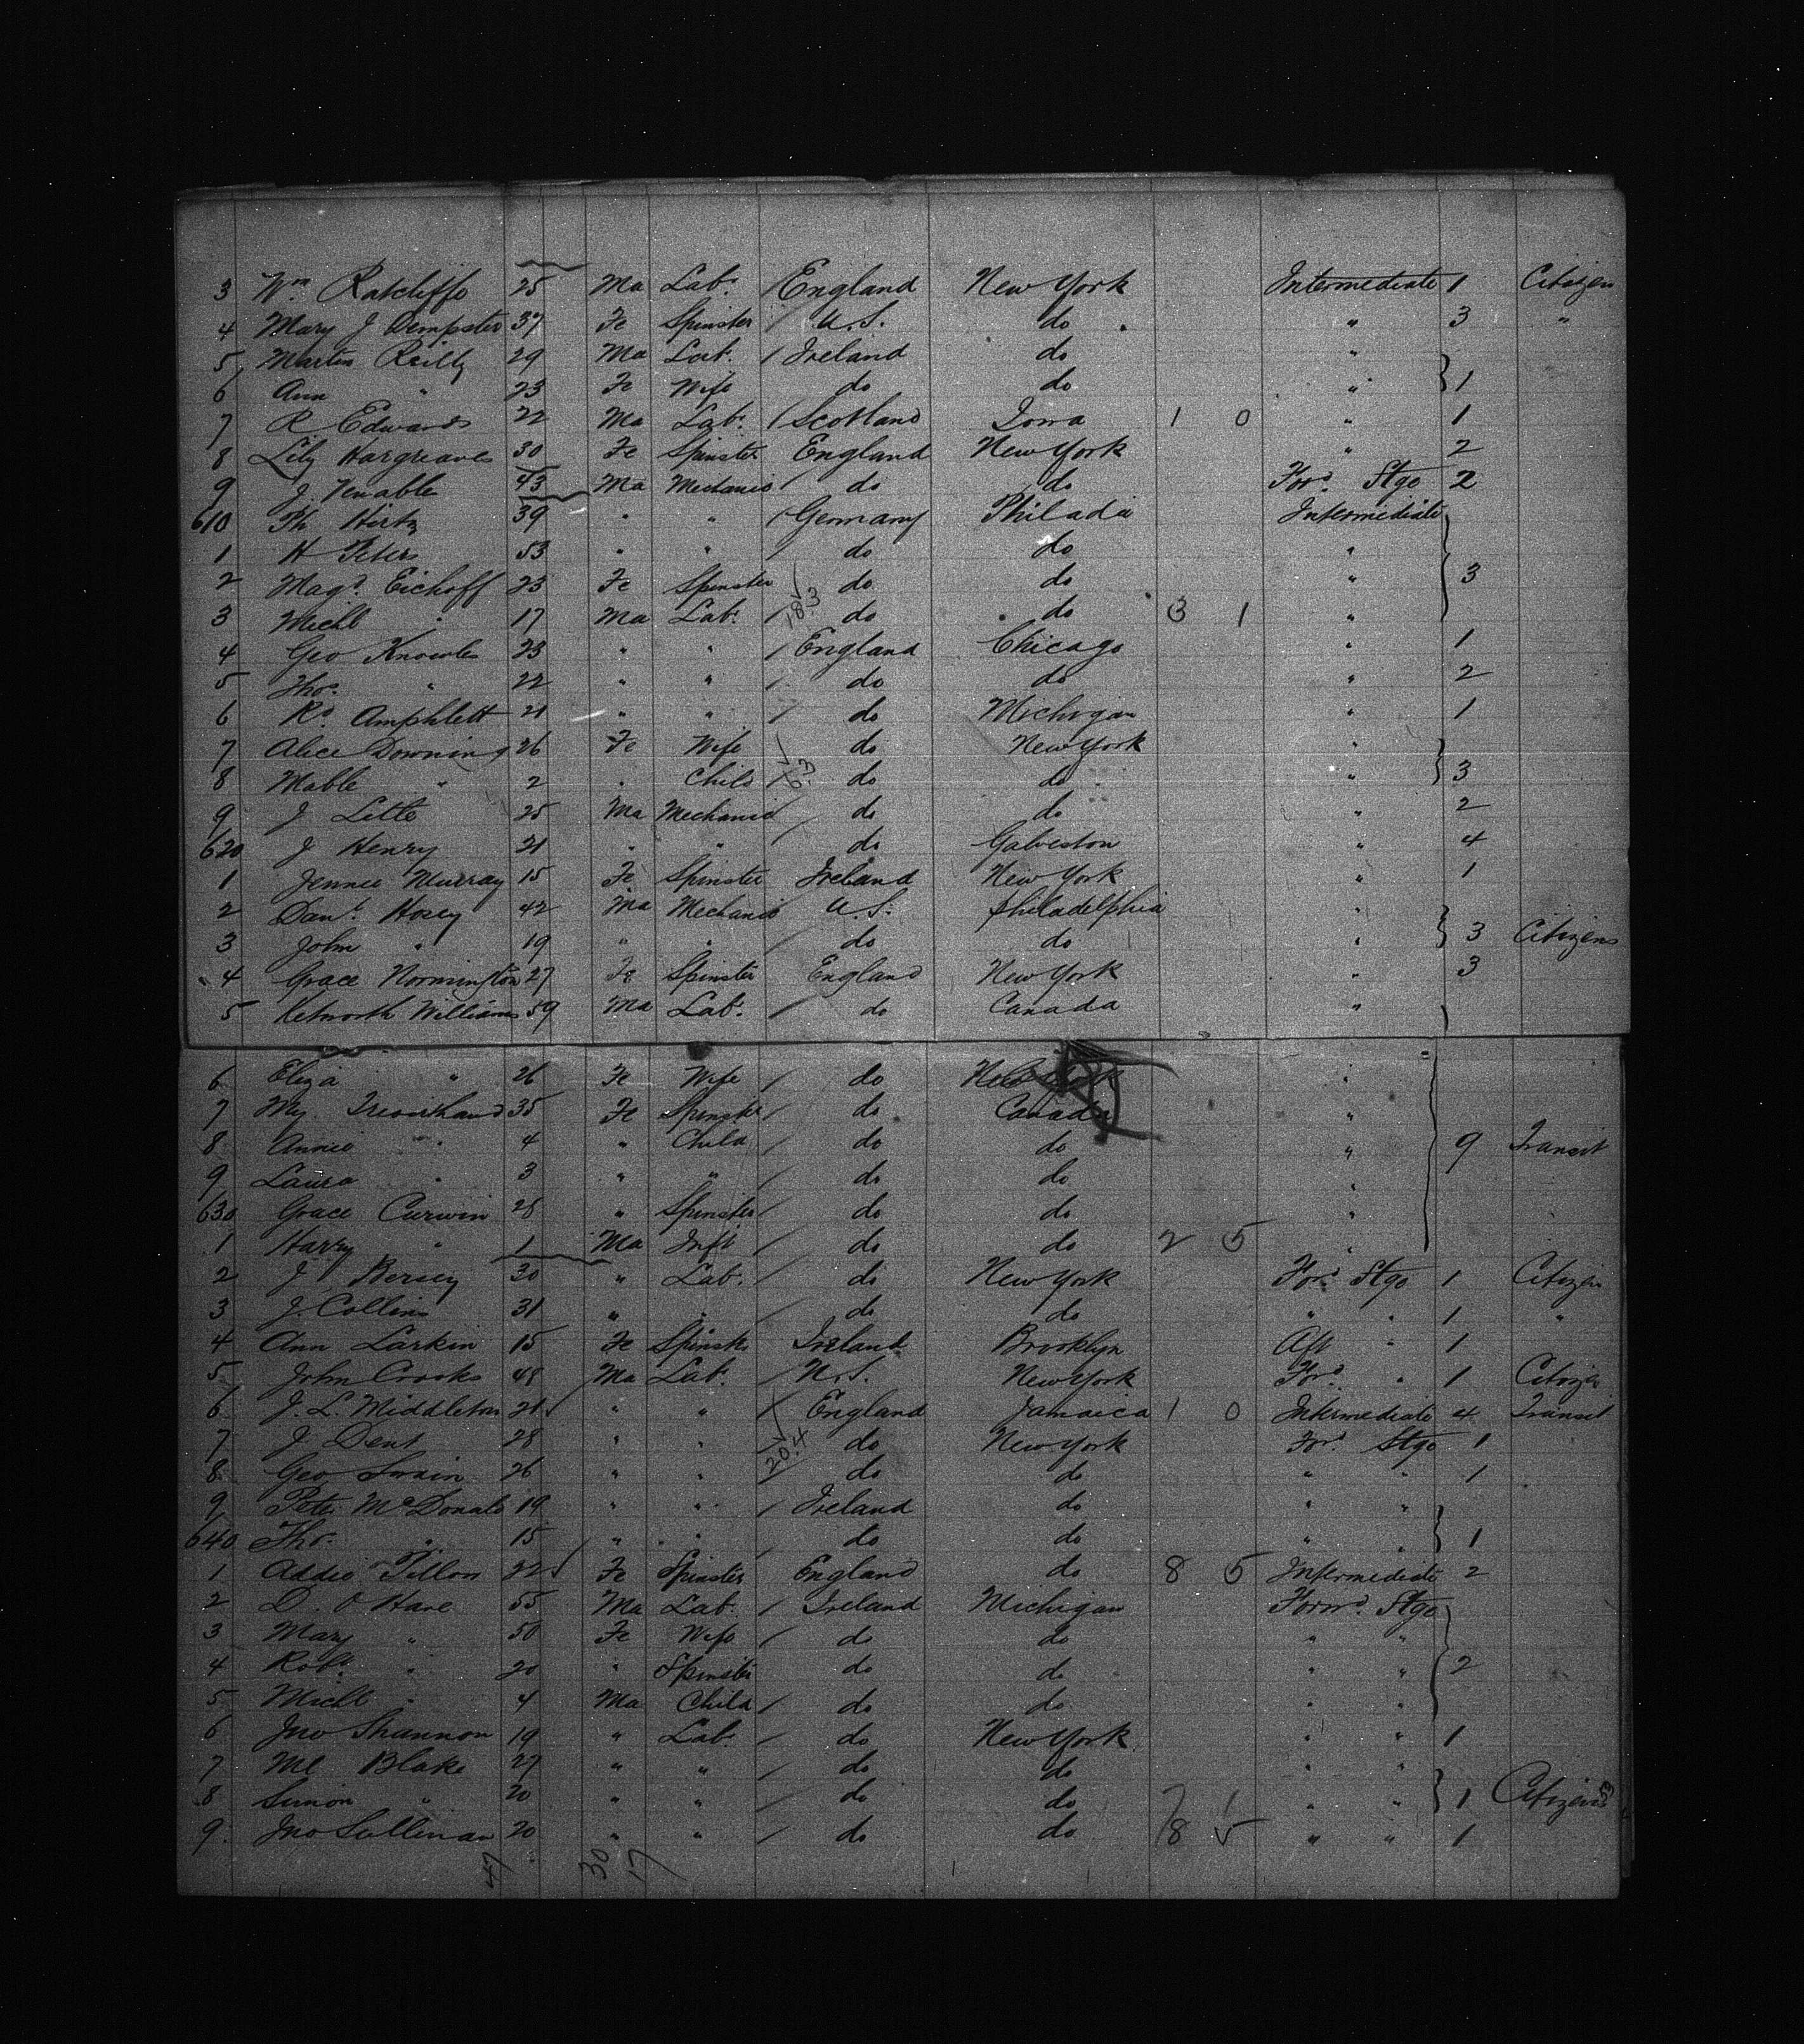 3 Wm Ratcliffe 25 Ma Lab. / England New York Intermediate 1 Citizen
4 Mary J Dempster 37 Fe Spinster / U.S. do " 3 "
5 Martin Reilly 29 Ma Lab. / Ireland do "
6 Ann " 23 Fe Wife do do " } 1
7 R Edwards 22 Ma Lab. / Scotland Iowa 1 0 " 1
8 Lily Hargreaves 30 Fe Spinster England New York " 2
9 J. Venable 43 Ma Mechanic / do do For'd Stge 2
610 Ph Hirtz 39 " " / Germany Philada Intermediate
1 H Peters 53 " " / do do "
2 Magd. Eichoff 23 Fe Spinster do do " } 3
3 Michl " 17 Ma Lab. / do do 3 1 "
4 Geo Knowles 23 " " / England Chicago " 1
5 Thos. " 22 " " / do do " 2
6 Rd. Amphlett 21 " " / do Michigan " 1
7 Alice Downing 26 Fe Wife do New York "
8 Mable " 2 " Child / do do " } 3
9 J Little 25 Ma Mechanic / do do " 2
620 J Henry 21 " " / do Galveston " 4
1 Jennie Murray 15 Fe Spinster Ireland New York " 1
2 Danl. Hosey 42 Ma Mechanic U.S. Philadelphia "
3 John " 19 " " / do do " } 3 Citizens
4 Grace Normington 27 Fe Spinster England New York " 3
5 Ketworth Williams 59 Ma Lab. / do Canada "
6 Eliza " 26 Fe Wife / do New York "
7 My. 35 Fe Spinster / do Canada "
8 Annie " 4 " Child / do do " 9 Transit
9 Laura " 3 " " / do do "
630 Grace Curwin 28 " Spinster / do do "
1 Harry " 1 Ma Inft / do do 2 5 "
2 J Bersey 30 " Lab. / do New York For'd Stge 1 Citizen
3 J. Collins 31 " " / do do " " 1 "
4 Ann Larkin 15 Fe Spinstr Ireland Brooklyn Aft " 1
5 John Crooks 48 Ma Lab. / U.S. New York For'd " 1 Citizen
6 J. L. Middleton 21 " " / England Jamaica 1 0 Intermediate 4 Transit
7 J Dent 28 " " / do New York For'd Stge 1
8 Geo Swain 26 " " / do do " " 1
9 Peter McDonald 19 " " / Ireland do " "
640 Tho. " 15 " " / do do " " } 1
1 Addie Tillon 22 Fe Spinster England do 8 5 Intermediate 2
2 D. O Hare 55 Ma Lab. / Ireland Michigan Forwd. Stge
3 Mary " 50 Fe Wife / do do " "
4 Robt. " 20 " Spinster do do " " 2
5 Michl " 4 Ma Child / do do " "
6 Jno Shannon 19 " Lab. / do New York " " 1
7 Ml Blake 27 " " / do do " "
8 Simon " 20 " " / do do 7 1 " " } 1 Citizens
9 Jno Sullivan 20 " " / do do 78 5 " " 1
47 30 17